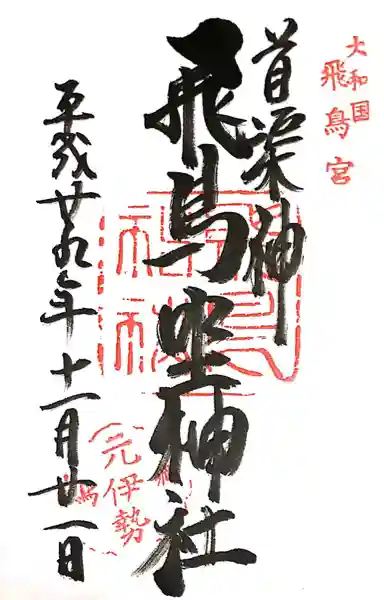 大和国
飛鳥宮
飛鳥坐神社
平成廿九年十一月廿一日
(元伊勢